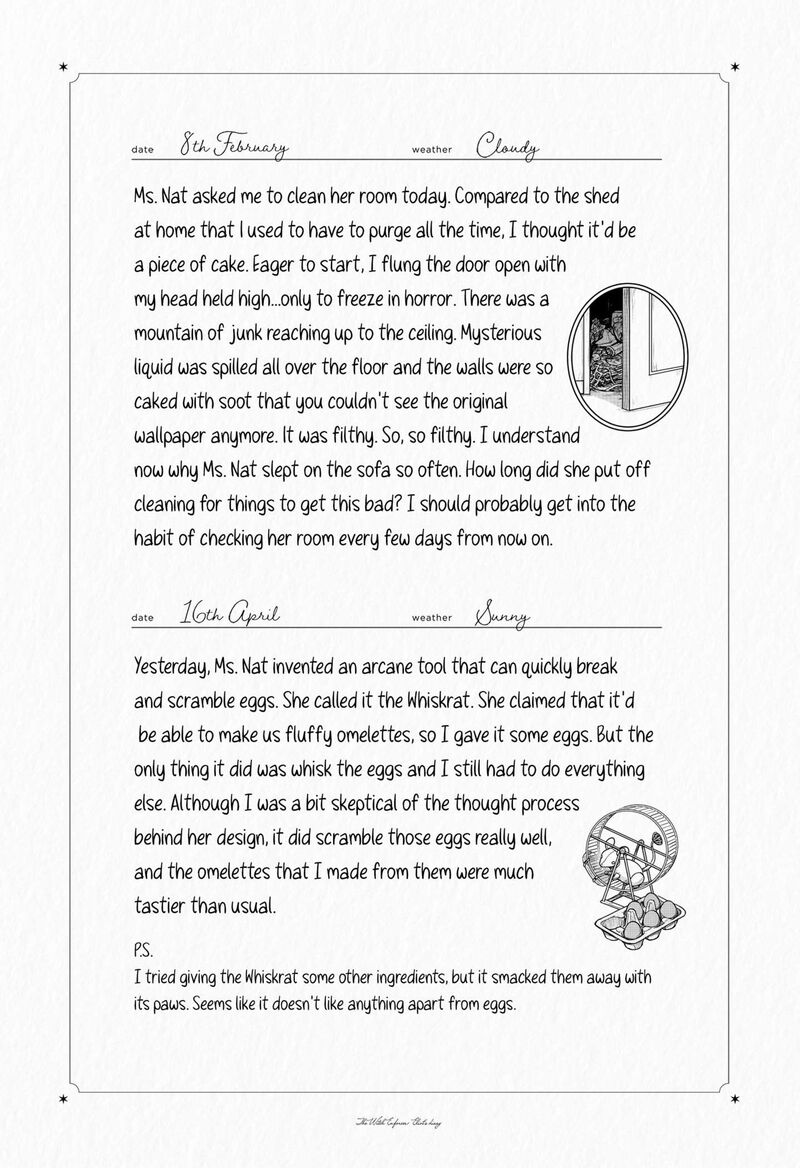 date 8th February weather Cloudy
Ms. Nat asked me to clean her room today. Compared to the shed
at home that I used to have to purge all the time, I thought it'd be
a piece of cake. Eager to start, I flung the door open with
my head held high...only to freeze in horror. There was a
mountain of junk reaching up to the ceiling. Mysterious
liquid was spilled all over the floor and the walls were so
caked with soot that you couldn't see the original
wallpaper anymore. It was filthy. So, so filthy. I understand
now why Ms. Nat slept on the sofa so often. How long did she put off
cleaning for things to get this bad? I should probably get into the
habit of checking her room every few days from now on.
date 16th April weather Sunny
Yesterday, Ms. Nat invented an arcane tool that can quickly break
and scramble eggs. She called it the Whiskrat. She claimed that it'd
be able to make us fluffy omelettes, so I gave it some eggs. But the
only thing it did was whisk the eggs and I still had to do everything
else. Although I was a bit skeptical of the thought process
behind her design, it did scramble those eggs really well,
and the omelettes that I made from them were much
tastier than usual.
P.S.
I tried giving the Whiskrat some other ingredients, but it smacked them away with
its paws. Seems like it doesn't like anything apart from eggs.
The Witch diary